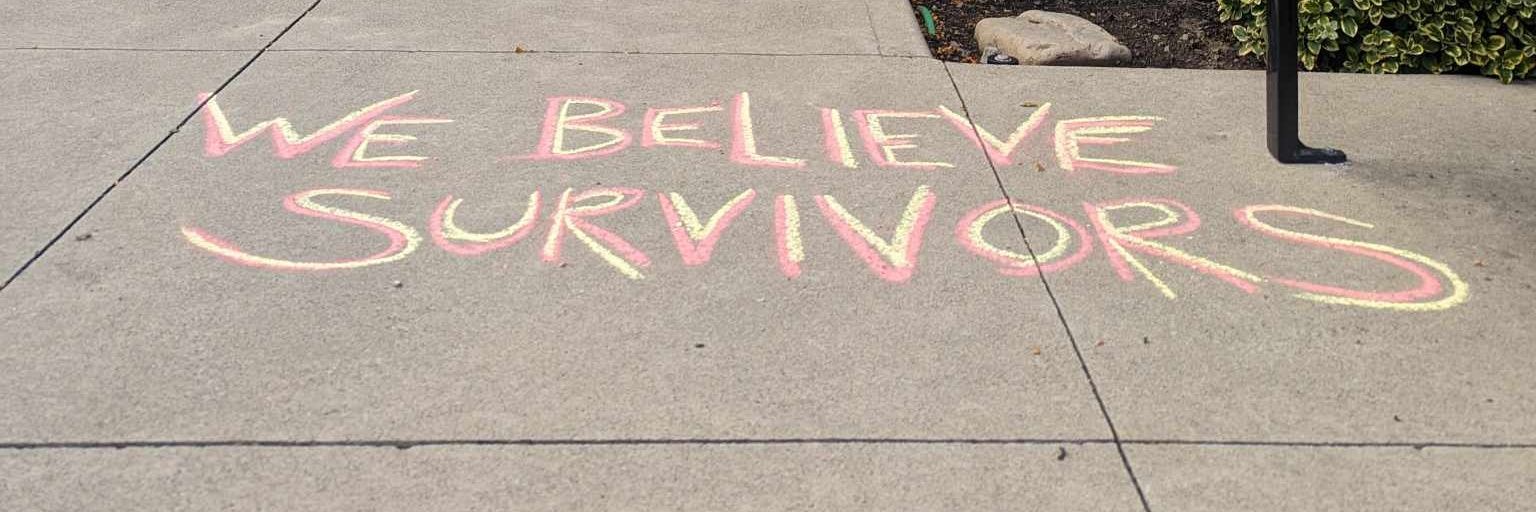 WE BELIEVE
SURVIVORS